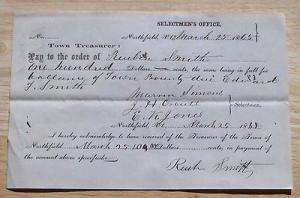 SELECTMEN'S OFFICE,
No. Northfield, Vt. March 25 1865
Town Treasurer:
Pay to the order of Reuben Smith
One hundred Dollars cents, the same being in full for
balance of Town Bounty due
F. Smith
Marvin Simons
J. H. Orcutt
Selectmen.
E. K. Jones
Northfield, Vt. March 25 186
I hereby acknowledge to have received of the Treasurer of the Town of
Northfield March 25 100 Dollars
cents, in payment of
the amount above specified.
Smith